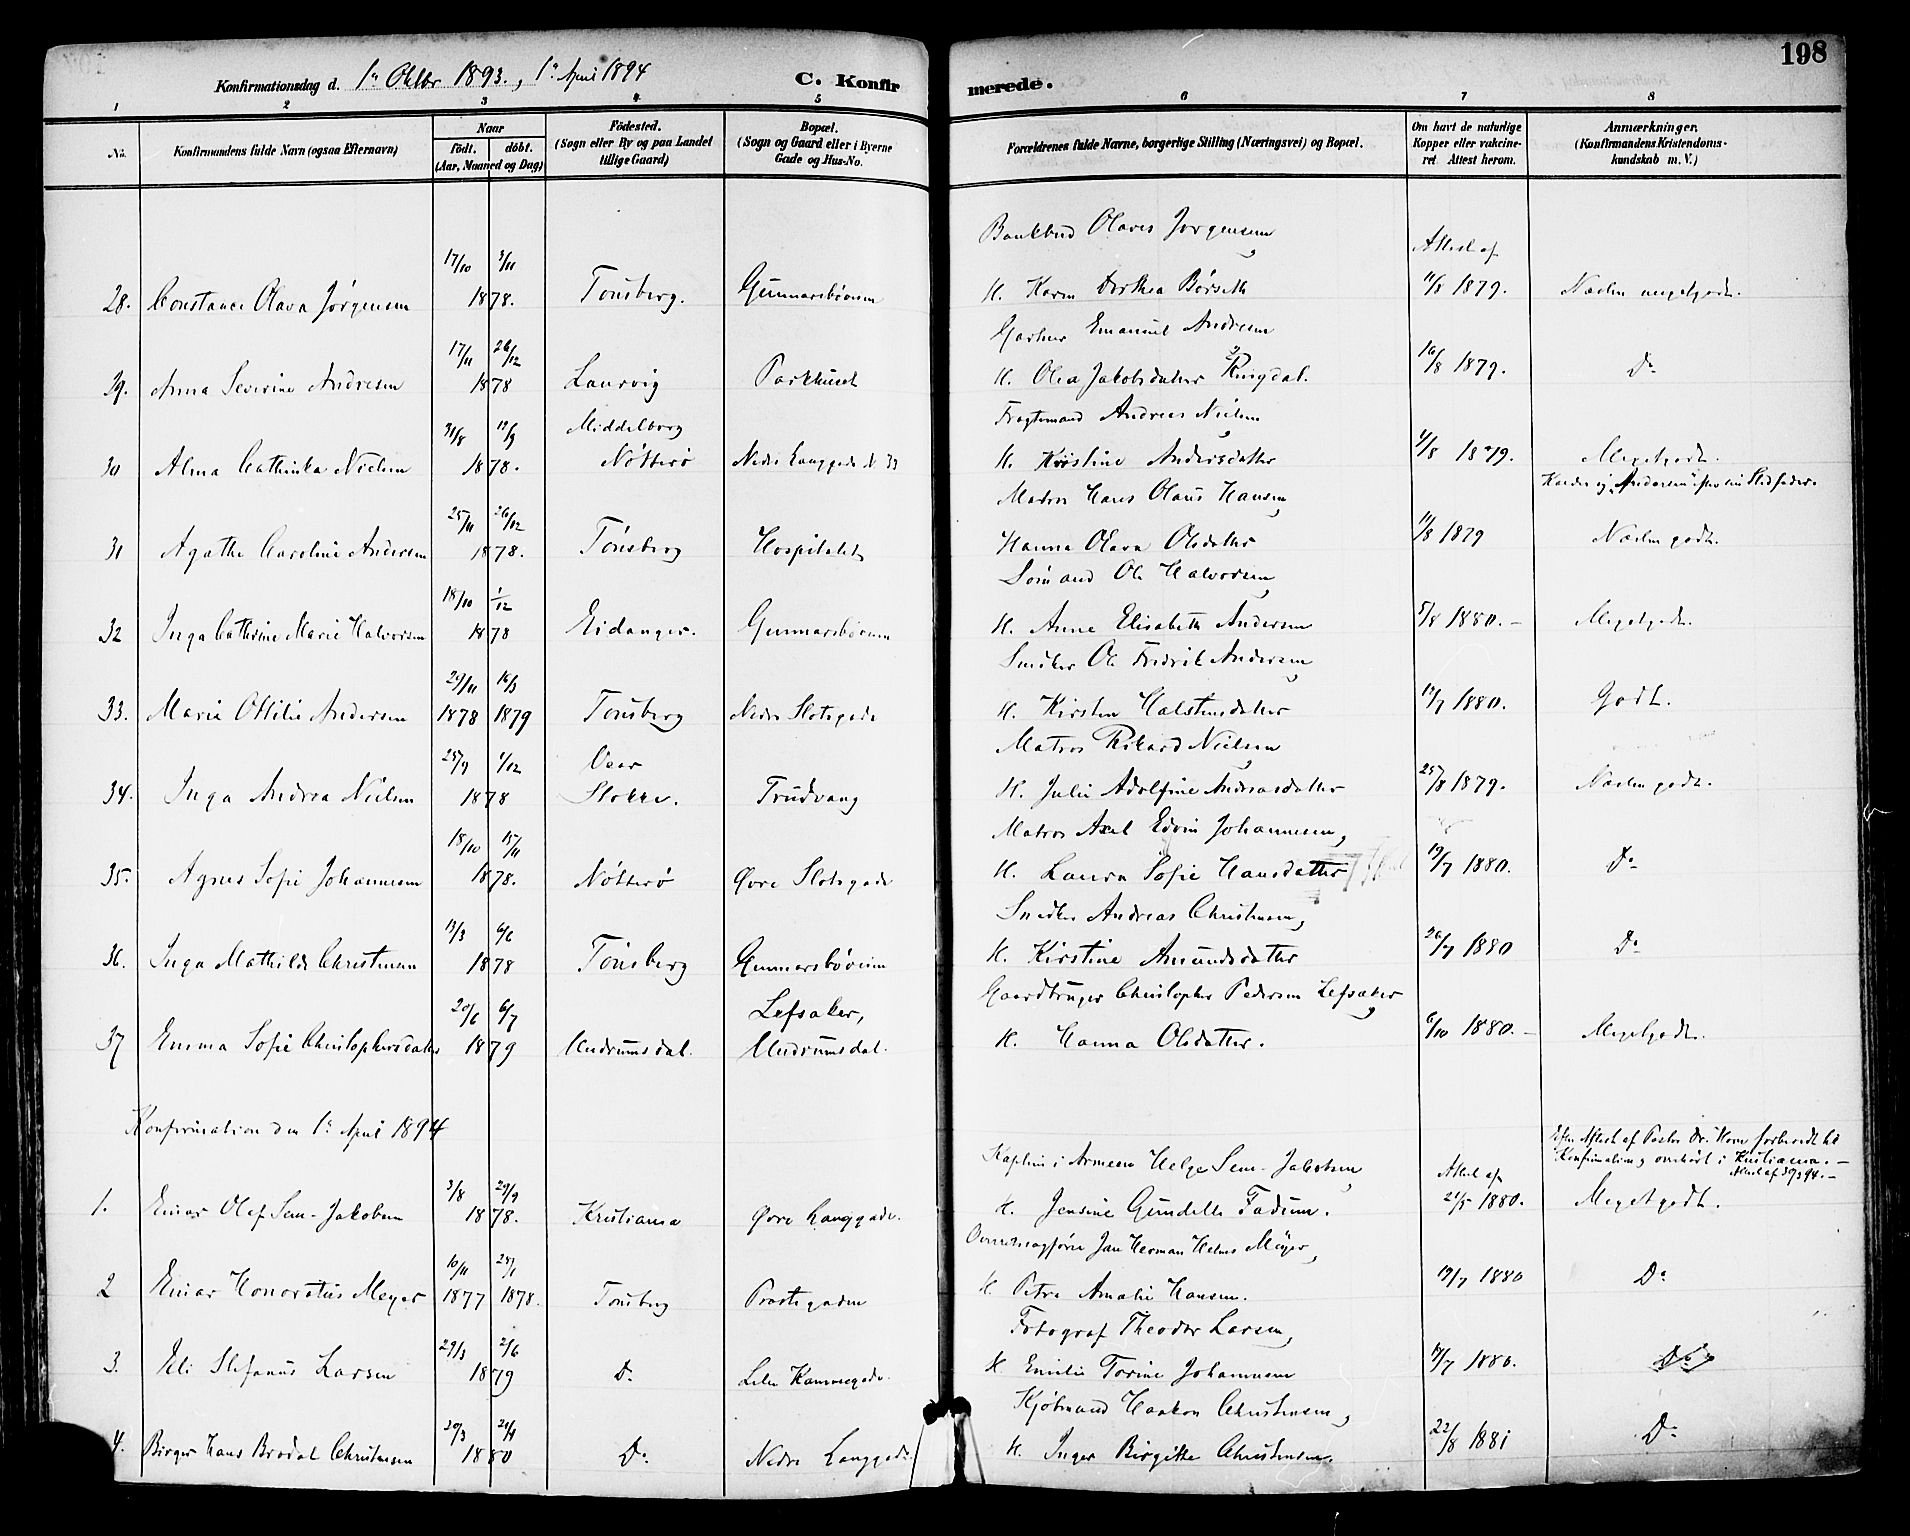 198
Konfirmationsdag d. 1ste Oktbr 1893., 1ste April 1894
C. Konfirmerede.
1 2 3 4 5 6 7 8
No.
Konfirmandens fulde Navn (ogsaa Efternavn)
Naar
födt. döbt.
(Aar, Maaned og Dag)
Födested.
(Sogn eller By og paa Landet tillige Gaard)
Bopæl.
(Sogn og Gaard eller i Byerne Gade og Hus-No.
Forældrenes fulde Navne, borgerlige Stilling (Næringsvei) og Bopæl.
Om havt de naturlige Kopper eller vakcineret Attest herom.
Anmærkninger.
(Konfirmandens Kristendomskundskab m. V.)
Bankbud Olaves Jørgensen,
Attest af
17/10 3/11
28. Constance Olava Jørgensen 1878. Tønsberg. Gunnarsbøveien H. Karen Dorthea Børseth 11/8 1879. Næsten megetgodt.
Gartner Emanuel Andresen
17/11 26/12
29. Anna Severine Andresen 1878 Laurvig Parkhuset H. Olea Jakobsdatter Ringdal. 16/8 1879. Do
Fragtemand Andreas Nielsen,
31/8 19/9 Middelborg
30 Alma Cathinka Nielsen 1878. Nøtterø Nedre Langgade N 33 H. Kristine Andersdatter 4/8 1879. Megetgodt.
Matros Hans Olaus Hansen,
Kaldes og "Andersen" efter sin Stedfader.
25/11 26/12
31 Agathe Caroline Andersen 1878. Tønsberg Hospitalet Hanna Olava Olsdatter 11/8 1879 Næsten godt.
Sømand Ole Halvorsen,
18/10 1/12
32 Inga Cathrine Marie Halvorsen 1878 Eidanger. Gunnarsbøveien H. Anne Elisabeth Andersen 5/8 1880.- Megetgodt.
Snedker Ole Fredrik Andersen,
29/11 16/3
33. Marie Ottilie Andersen 1878 1879 Tønsberg Nedre Slotsgade H. Kirsten Halstensdatter 19/7 1880. Godt.
Matros Rikard Nielsen,
25/9 1/12
34. Inga Andrea Nielsen 1878 Stokke. Trudvang H. Julie Adolfine Andreasdatter 25/8 1879. Næsten godt.
Matros Axel Edvin Johannesen,
18/10 15/11
35. Agnes Sofie Johannesen 1878. Nøtterø Øvre Slotsgade H. Laura Sofie Hansdatter 19/7 1880. Do
Snedker Andreas Christensen,
13/3 6/6
36. Inga Mathilde Christensen 1878 Tønsberg Gunnarsbøveien H. Kirstine Amundsdatter 26/7 1880 Do
Gaardbruger Christopher Pedersen Lefsaker,
20/6 6/7 Lefsaker,
37 Emma Sofie Christophersdatter 1879 Undrumsdal. Undrumsdal. H. Hanna Olsdatter. 6/10 1880.- Megetgodt.
Konfirmation den 1ste April 1894
Efter Attest af Pastor Dr. Horn forberedt til Konfirmation, omhørt i Kristiania.-
Kaptein i Armeen Helge Sem-Jakobsen,
Attest af
3/8 29/9
1. Einar Olaf Sem-Jakobsen 1878. Kristiania Øvre Langgade. H. Jensine Gundelle Fadum. 21/5 1880. Megetgodt.
Overretssagfører Jan Herman Helms Meyer,
10/11 25/1
2 Einar Honoratus Meyer 1877 1878. Tønsberg Prestegaden H. Petra Amalie Hansen. 19/7 1880 Do
Fotograf Theodor Larsen,
29/3 2/6
3. Eli Stefanus Larsen 1879 Do Lille Kammegade. H. Emilie Torine Johannesen 19/7 1880. Do
Kjøbmand Haakon Christensen,
20/3 21/4
4. Birger Hans Brodal Christensen 1880 Do Nedre Langgade. H. Inger Birgitte Christensen. 22/8 1881 Do